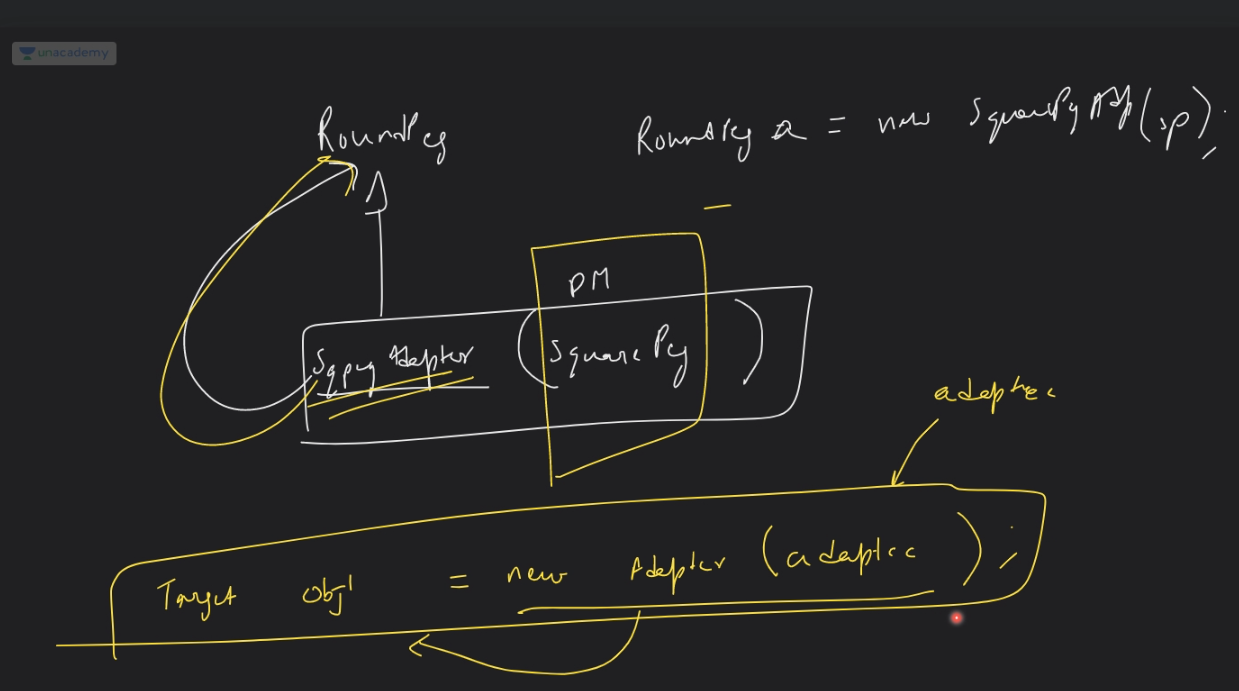 unacademy
RoundPeg
RoundPeg a = new SquarePgAdp(sp);
PM
Sqpeg Adapter (Square Peg)
adaptee
Target obj = new Adapter (adaptee);